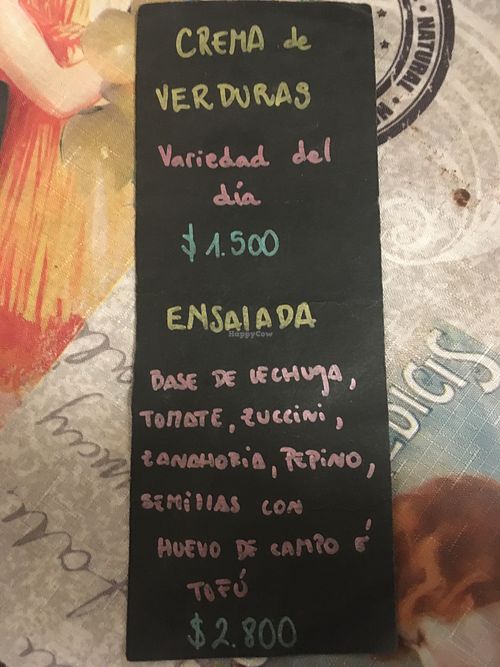 CREMA de
VERDURAS
Variedad del
día
$1.500
ENSALADA
BASE DE LECHUGA,
TOMATE, ZUCCINI,
ZANAHORIA, PEPINO,
SEMILLAS CON
HUEVO DE CAMPO Ó
TOFÚ
$2.800
NATURAL
EDICIS
HappyCow